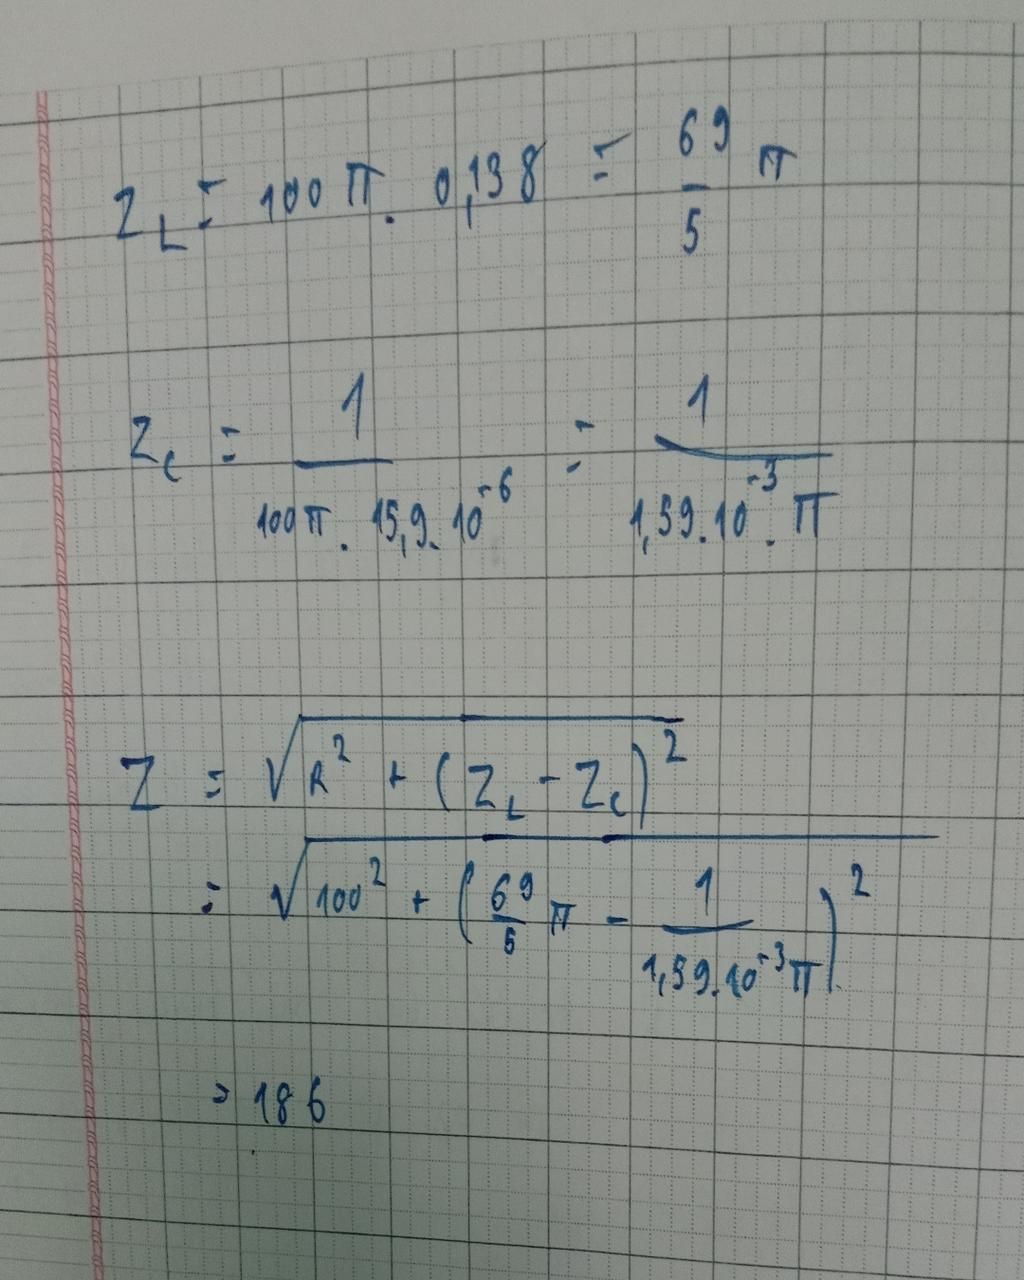 Z_L = 100π . 0,138 = 69/5 π
Z_C = 1/(100π . 15,9.10^-6) = 1/(1,59.10^-3 . π)
Z = √(R² + (Z_L - Z_C)²)
= √(100² + (69/5 π - 1/(1,59.10^-3 π))²)
= 186